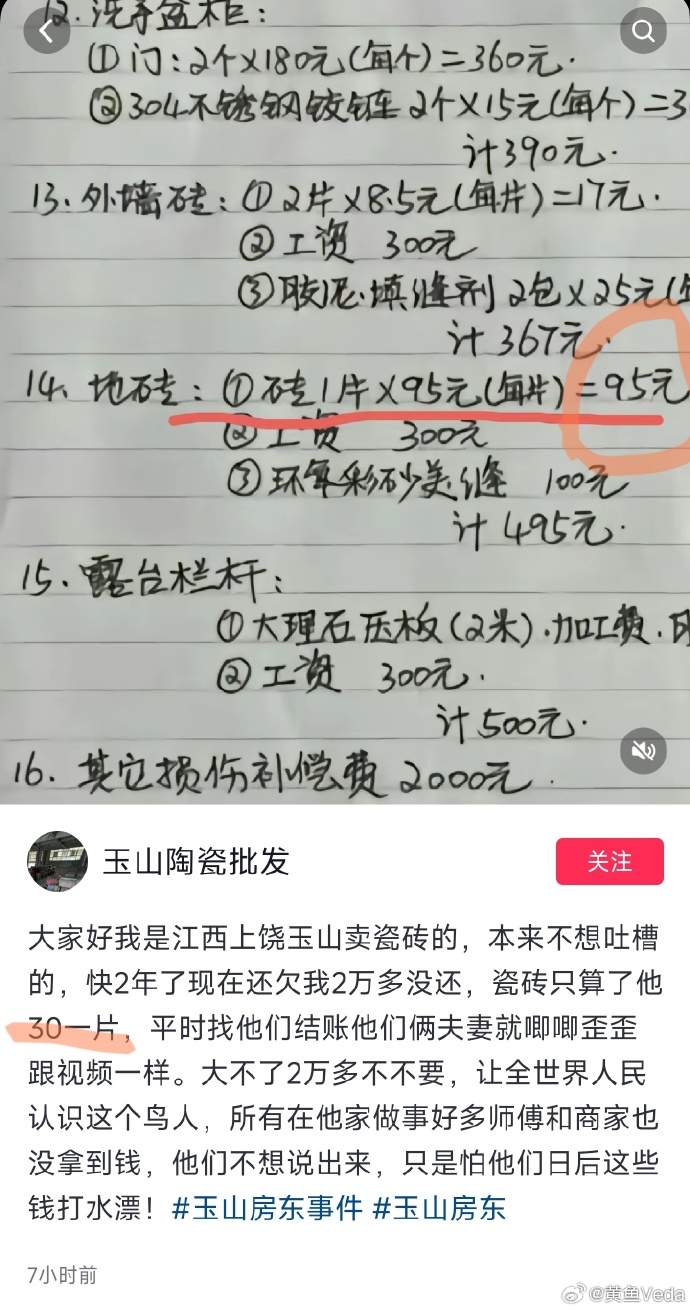 12. 洗手盆柜:
①门:2个×180元(每个)=360元.
②304不锈钢铰链 2个×15元(每个)=3
计390元.
13. 外墙砖:①2片×8.5元(每片)=17元.
②工资 300元
③胶泥.填缝剂 2包×25元(
计367元.
14. 地砖:①砖1片×95元(每片)=95元
②工资 300元
③环氧彩砂美缝 100元
计495元.
15. 露台栏杆:
①大理石压板(2米).加工费.
②工资 300元.
计500元.
16. 其它损伤补偿费 2000元.
玉山陶瓷批发
关注
大家好我是江西上饶玉山卖瓷砖的,本来不想吐槽
的,快2年了现在还欠我2万多没还,瓷砖只算了他
30一片,平时找他们结账他们俩夫妻就唧唧歪歪
跟视频一样。大不了2万多不不要,让全世界人民
认识这个鸟人,所有在他家做事好多师傅和商家也
没拿到钱,他们不想说出来,只是怕他们日后这些
钱打水漂!#玉山房东事件 #玉山房东
7小时前
@黄鱼Veda